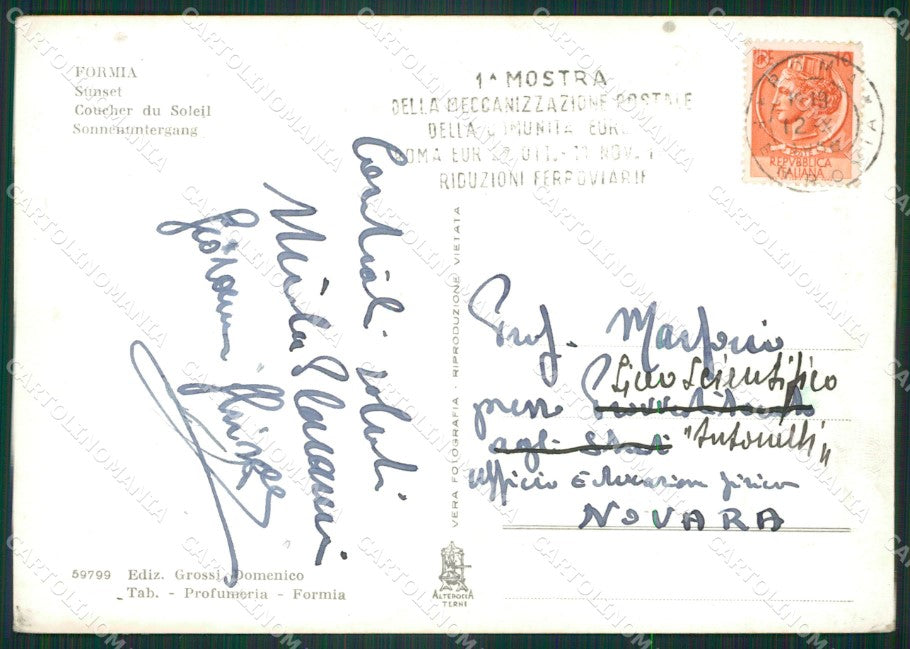 FORMIA
Sunset
Coucher du Soleil
Sonnenuntergang
1ª MOSTRA
DELLA MECCANIZZAZIONE POSTALE
DELLA COMUNITA' EUR
ROMA EUR OTT. - NOV.
RIDUZIONI FERROVIARIE
REPVBBLICA
ITALIANA
Cordiali saluti
Giovanni
Prof.
Liceo Scientifico
presso Provveditorato
agli Studi "Antonelli"
Ufficio Educazione fisica
NOVARA
VERA FOTOGRAFIA RIPRODUZIONE VIETATA
59799 Ediz. Grossi Domenico
Tab. - Profumeria - Formia
ALTEROCCA
TERNI
CARTOLINOMANIA